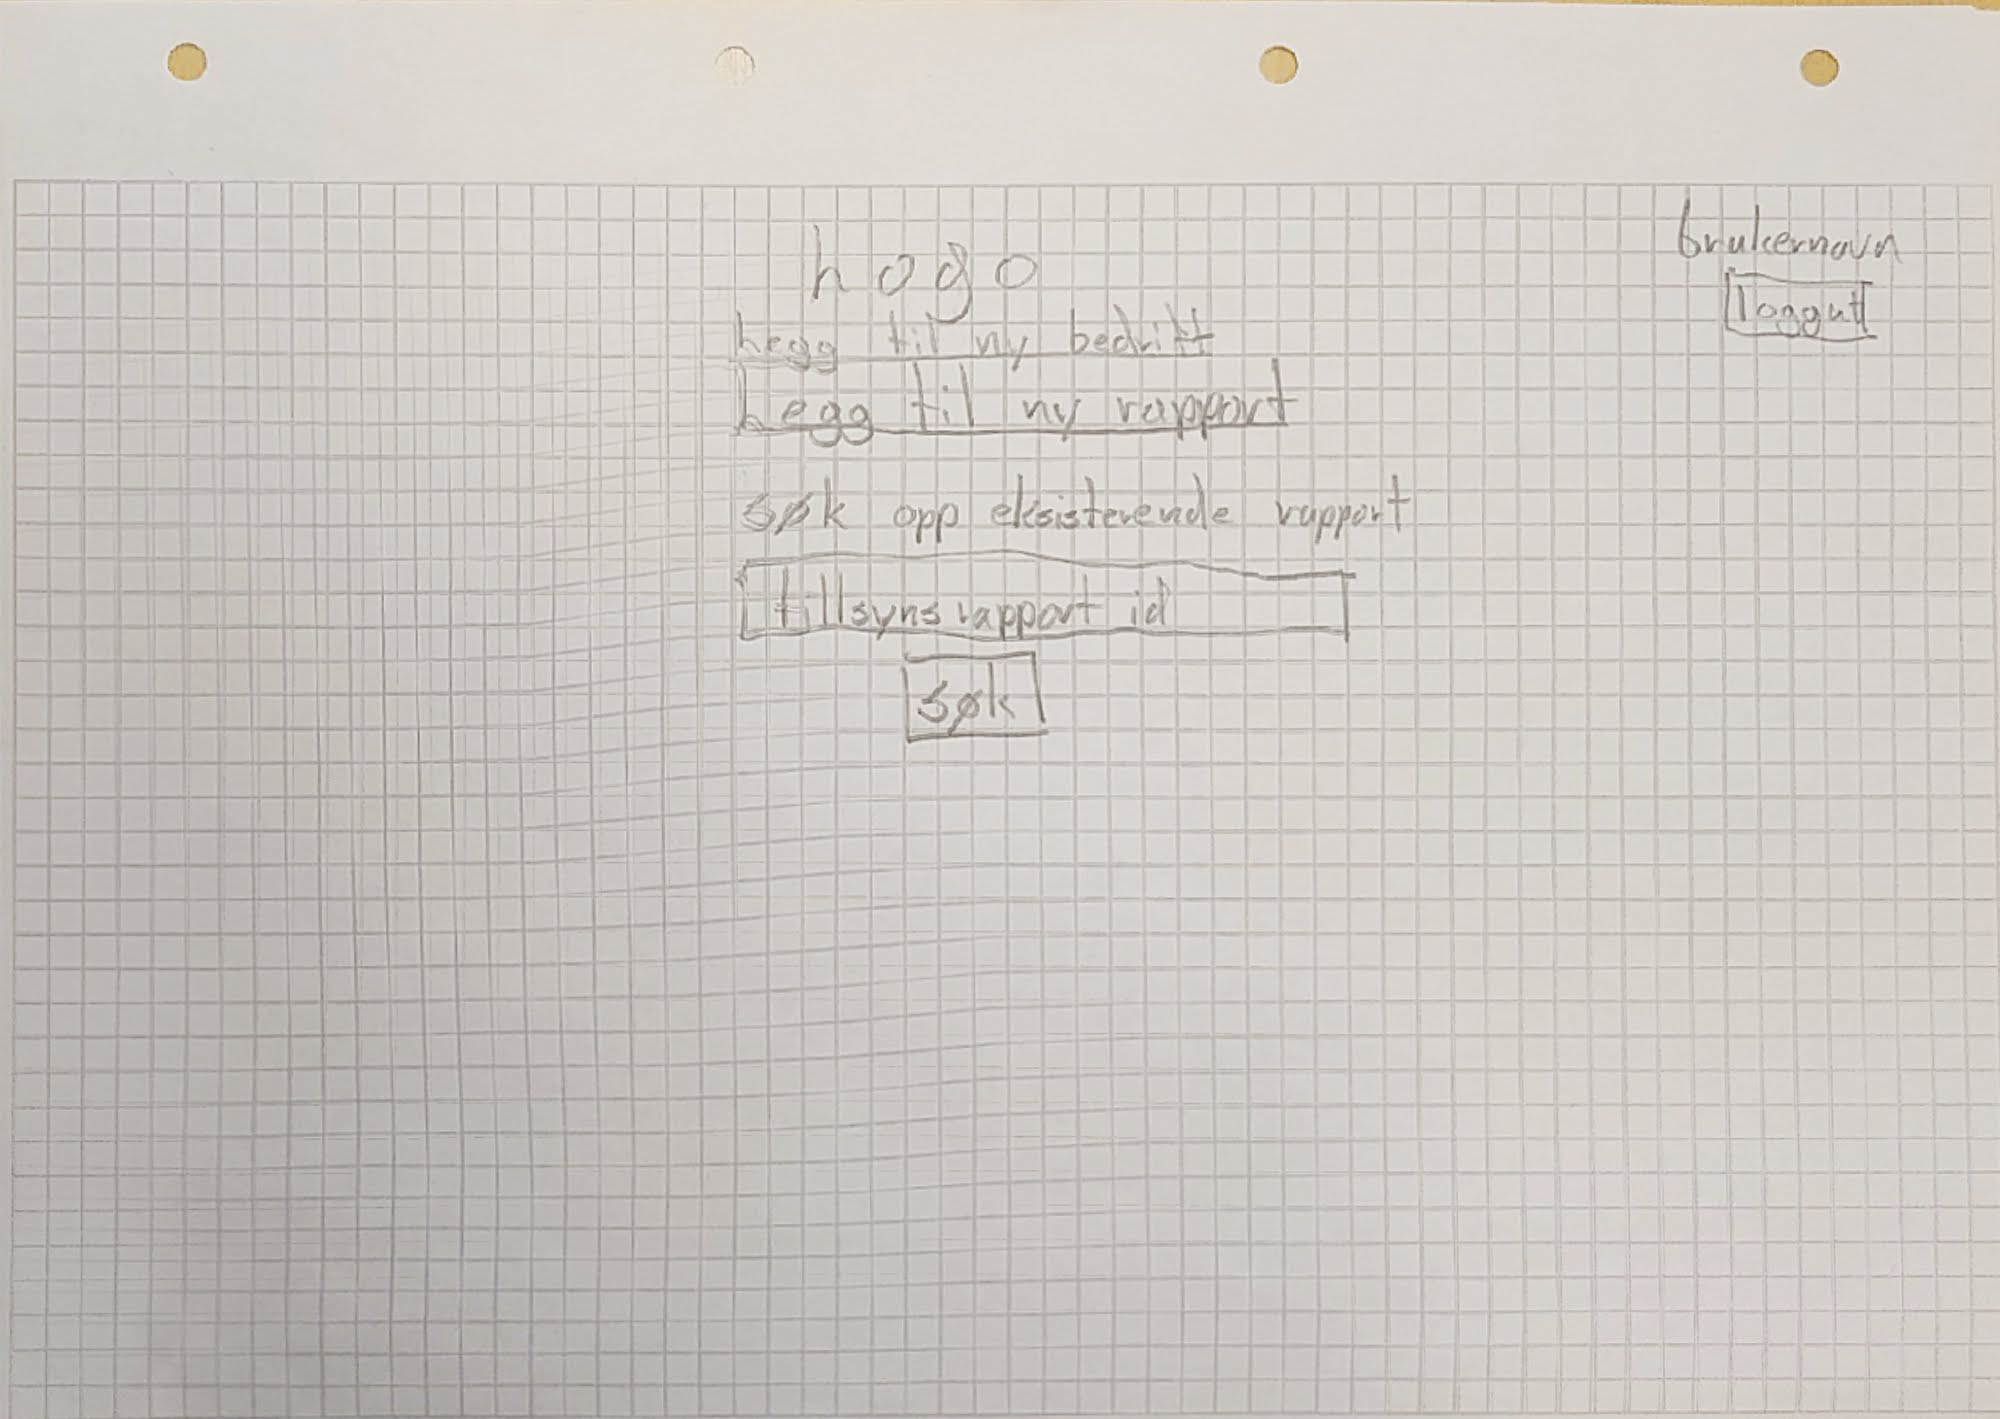 Logo
brukernavn
loggut
Legg til ny bedrift
Legg til ny rapport
søk opp eksisterende rapport
tillsynsrapport id
søk